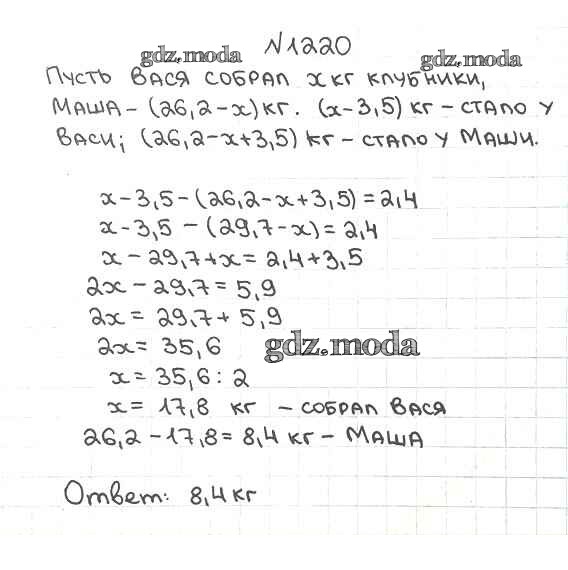 N1220
gdz.moda
gdz.moda
Пусть Вася собрал x кг клубники,
Маша - (26,2-x) кг. (x-3,5) кг - стало у
Васи; (26,2-x+3,5) кг - стало у Маши.
x-3,5-(26,2-x+3,5)=2,4
x-3,5-(29,7-x)=2,4
x-29,7+x=2,4+3,5
2x-29,7=5,9
2x=29,7+5,9
2x=35,6
gdz.moda
x=35,6:2
x=17,8 кг - собрал Вася
26,2-17,8=8,4 кг - Маша
Ответ: 8,4 кг